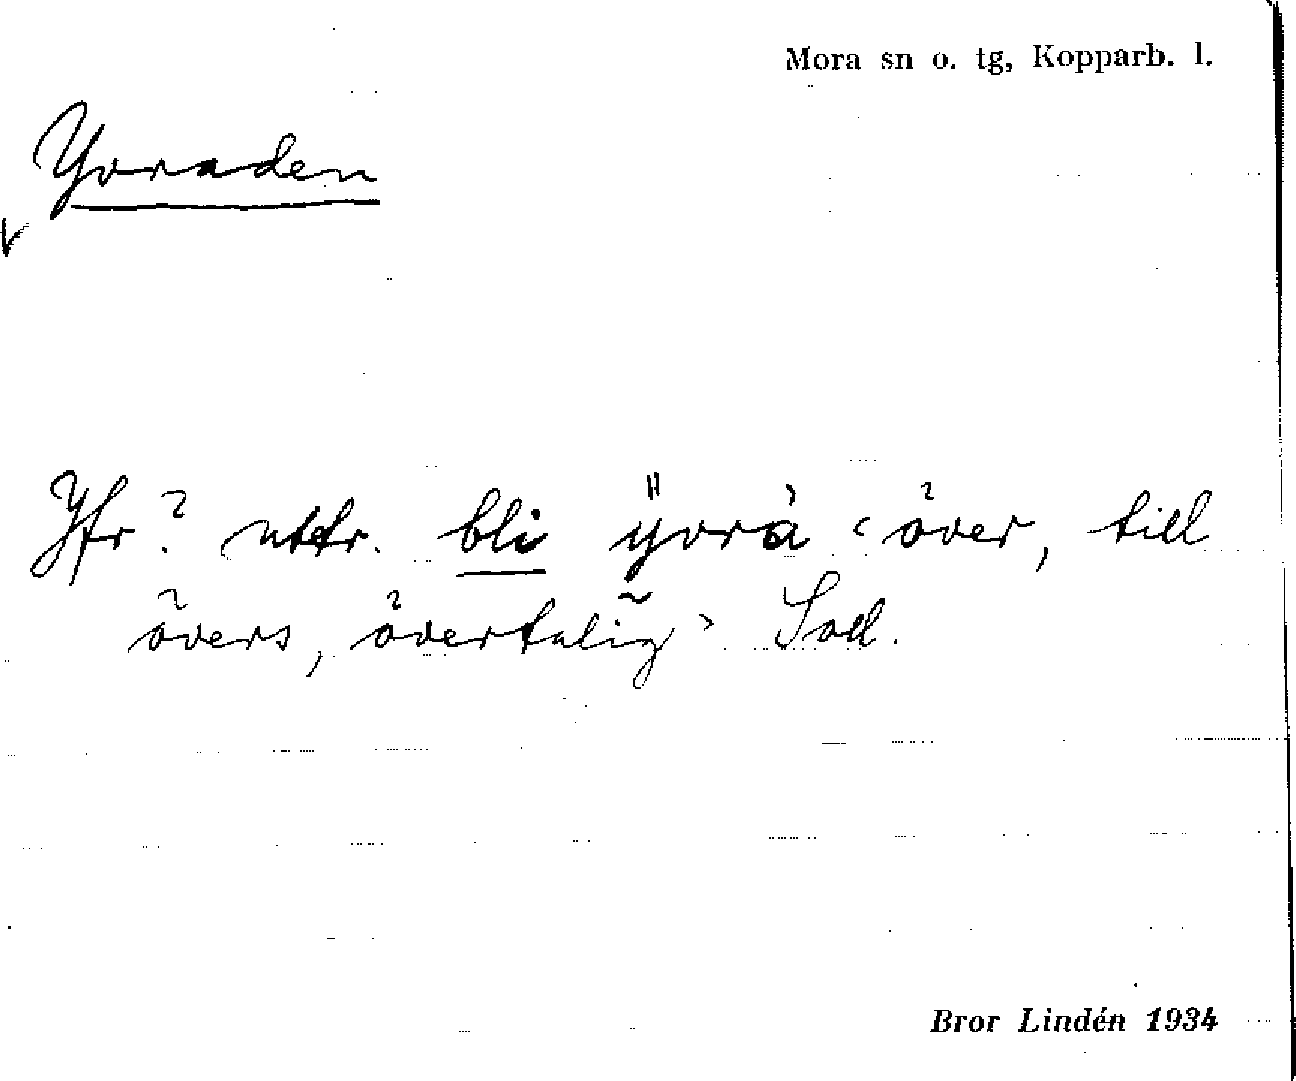 Mora sn o. tg, Kopparb. l.
Yvraden
Jfr? uttr. bli yvrà ‹över, till
övers, övertalig› Soll.
Bror Lindén 1934